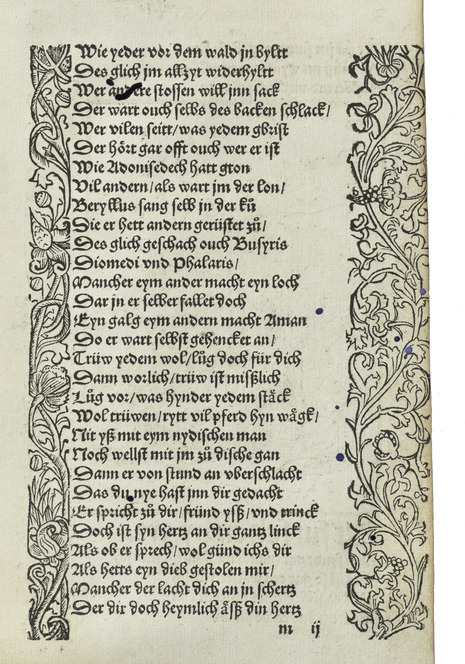 Wie yeder vor dem wald jn byltt
Des glich jm allzyt widerhyltt
Wer andere stossen will jnn sack
Der wart ouch selbs des backen schlack/
Wer vilen seitt/was yedem gbrist
Der hört gar offt ouch wer er ist
Wie Adonisedech hatt gton
Vil andern/als wart jm der lon/
Beryllus sang selb jn der kü
Die er hett andern gerüstet zů/
Des glich geschach ouch Busyris
Diomedi vnd Phalaris/
Mancher eym ander macht eyn loch
Dar jn er selber fallet doch
Eyn galg eym andern macht Aman
Do er wart selbst gehencket an/
Trüw yedem wol/lůg doch für dich
Dann worlich/trüw ist mißlich
Lůg vor/was hynder yedem stäck
Wol trüwen/rytt vil pferd hyn wägk/
Nit yß mut eym nydischen man
Noch wellst mit jm zů dische gan
Dann er von stund an vberschlacht
Das du nye hast jnn dir gedacht
Er spricht zů dir/fründ ysß/vnd trinck
Doch ist syn hertz an dir gantz linck
Als ob er sprech/wol günd ichs dir
Als hetts eyn dieb gestolen mir/
Mancher der lacht dich an jn schertz
Der dir doch heymlich äsß din hertz
m ij